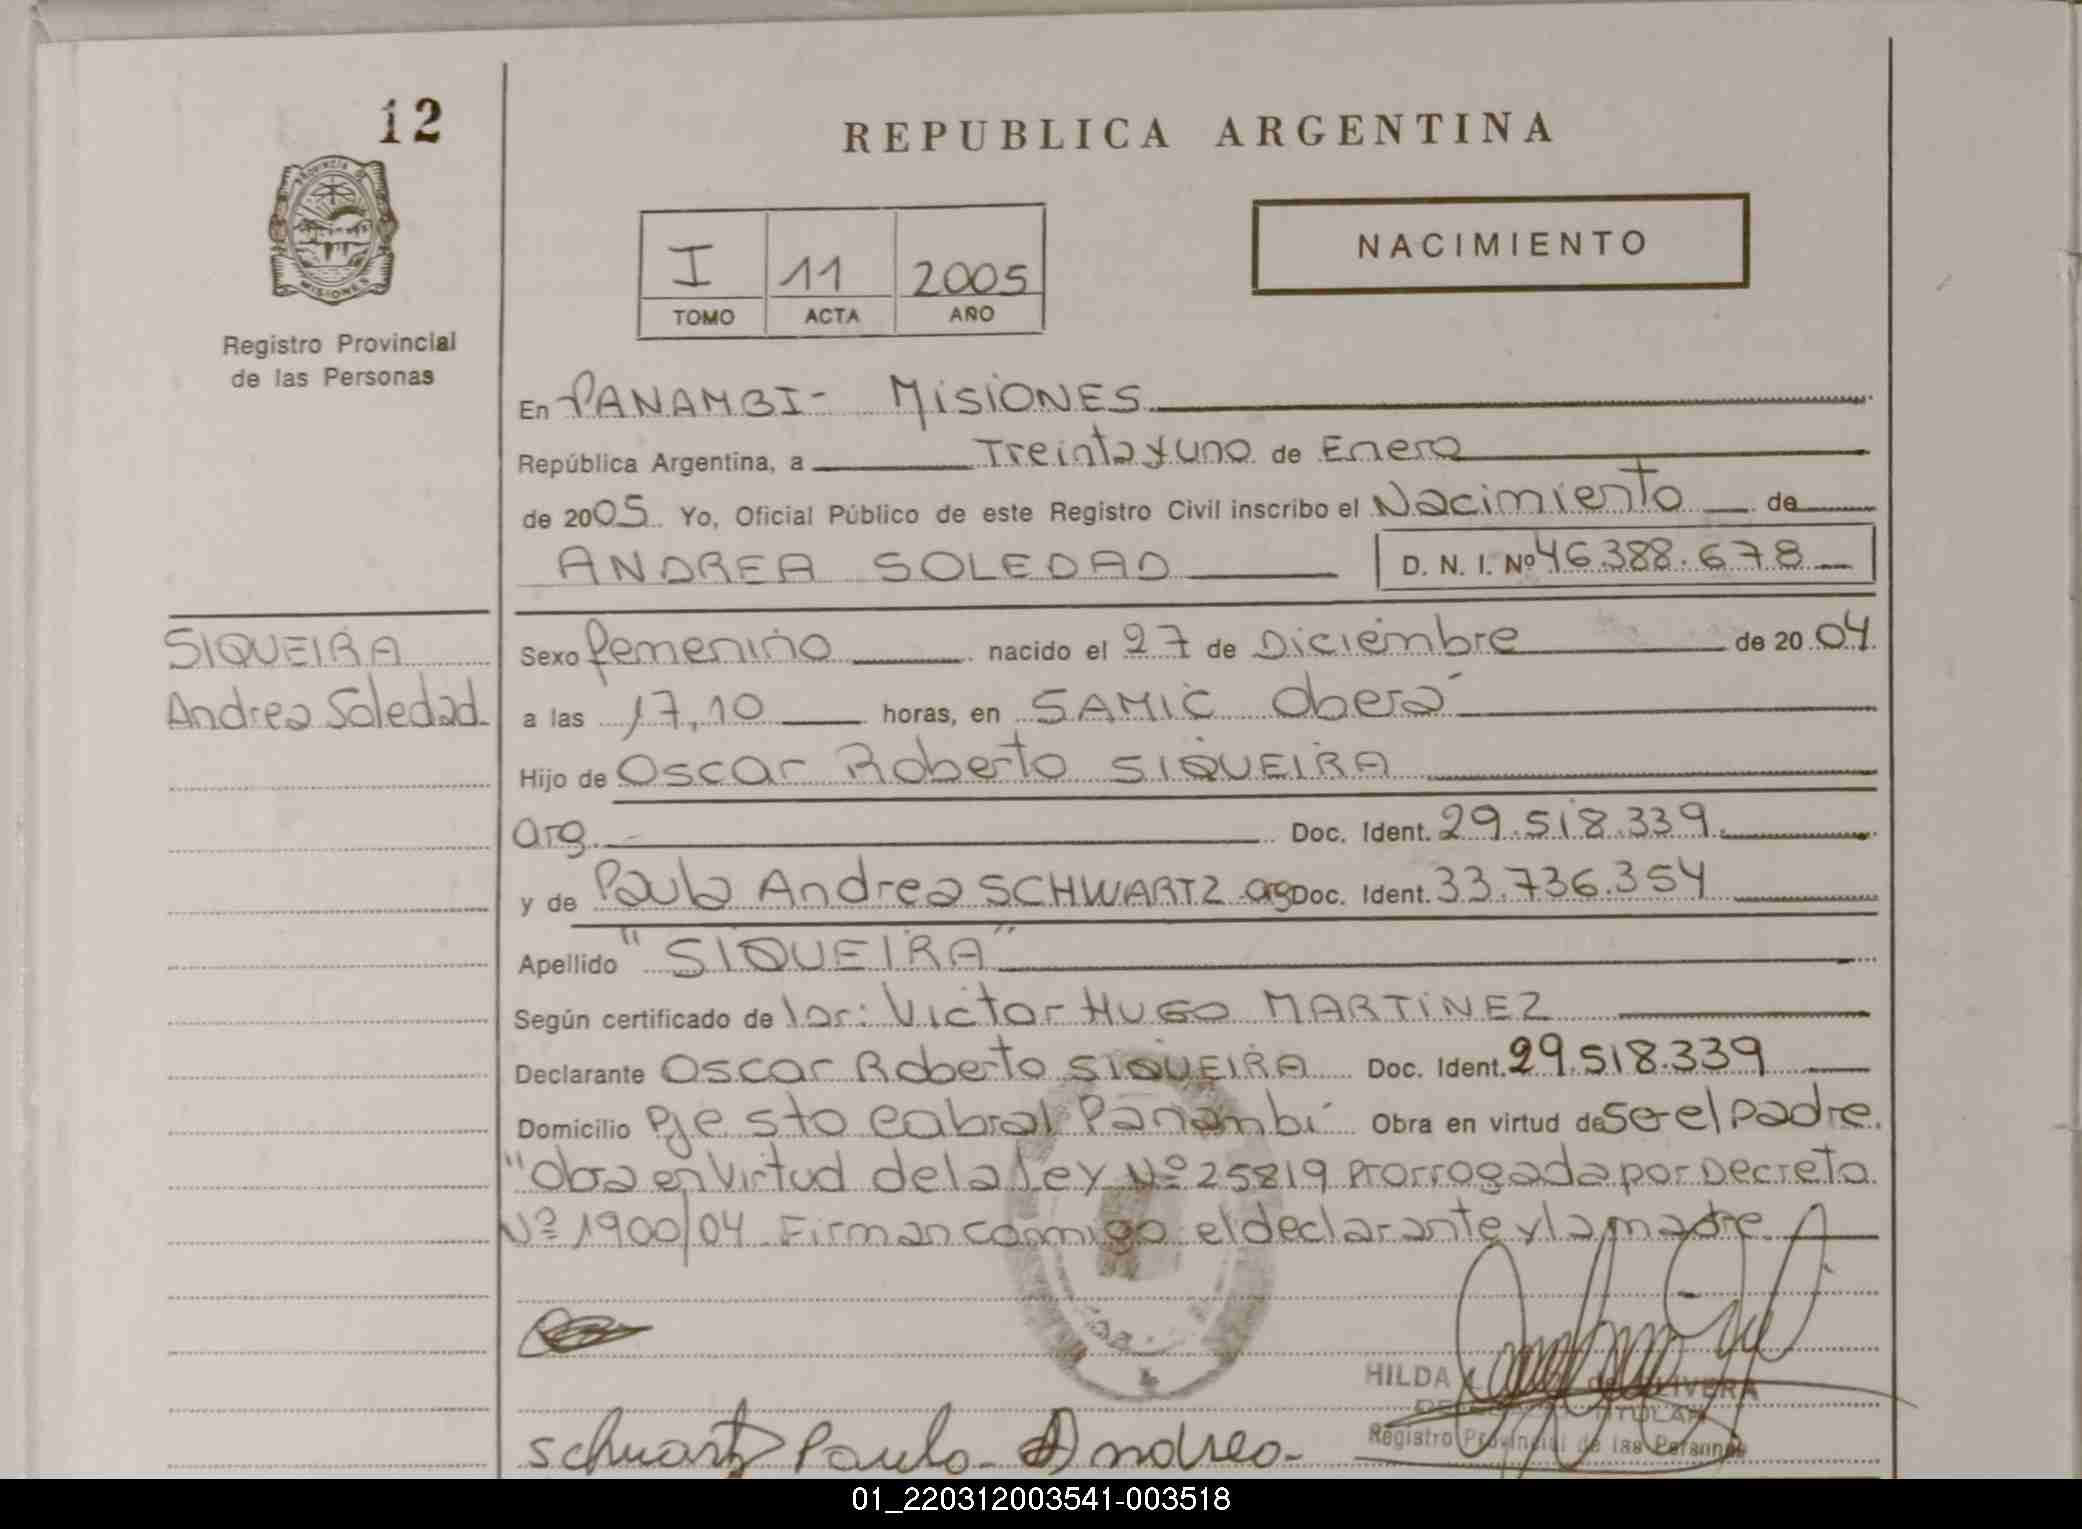 12
PROVINCIA DE
MISIONES
Registro Provincial
de las Personas
REPUBLICA ARGENTINA
I 11 2005
TOMO ACTA AÑO
NACIMIENTO
En PANAMBI- MISIONES
República Argentina, a Treinta y uno de Enero
de 2005. Yo, Oficial Público de este Registro Civil inscribo el Nacimiento de
ANDREA SOLEDAD D. N. I. Nº 46.388.678
SIQUEIRA
Andrea Soledad
Sexo femenino nacido el 27 de Diciembre de 2004.
a las 17,10 horas, en SAMIC Oberá
Hijo de Oscar Roberto SIQUEIRA
arg. Doc. Ident. 29.518.339
y de Paula Andrea SCHWARTZ arg Doc. Ident. 33.736.354
Apellido "SIQUEIRA"
Según certificado de Victor HUGO MARTINEZ
Declarante Oscar Roberto SIQUEIRA Doc. Ident. 29.518.339
Domicilio Pje sto Cabral Panambí Obra en virtud de ser el padre.
"Obra en Virtud de la Ley Nº 25819 Prorrogada por Decreto
Nº 1900/04. Firman conmigo el declarante y la madre.
HILDA de OLIVERA
TITULAR
Registro Provincial de las Personas
Schwartz Paula Andrea
01_220312003541-003518